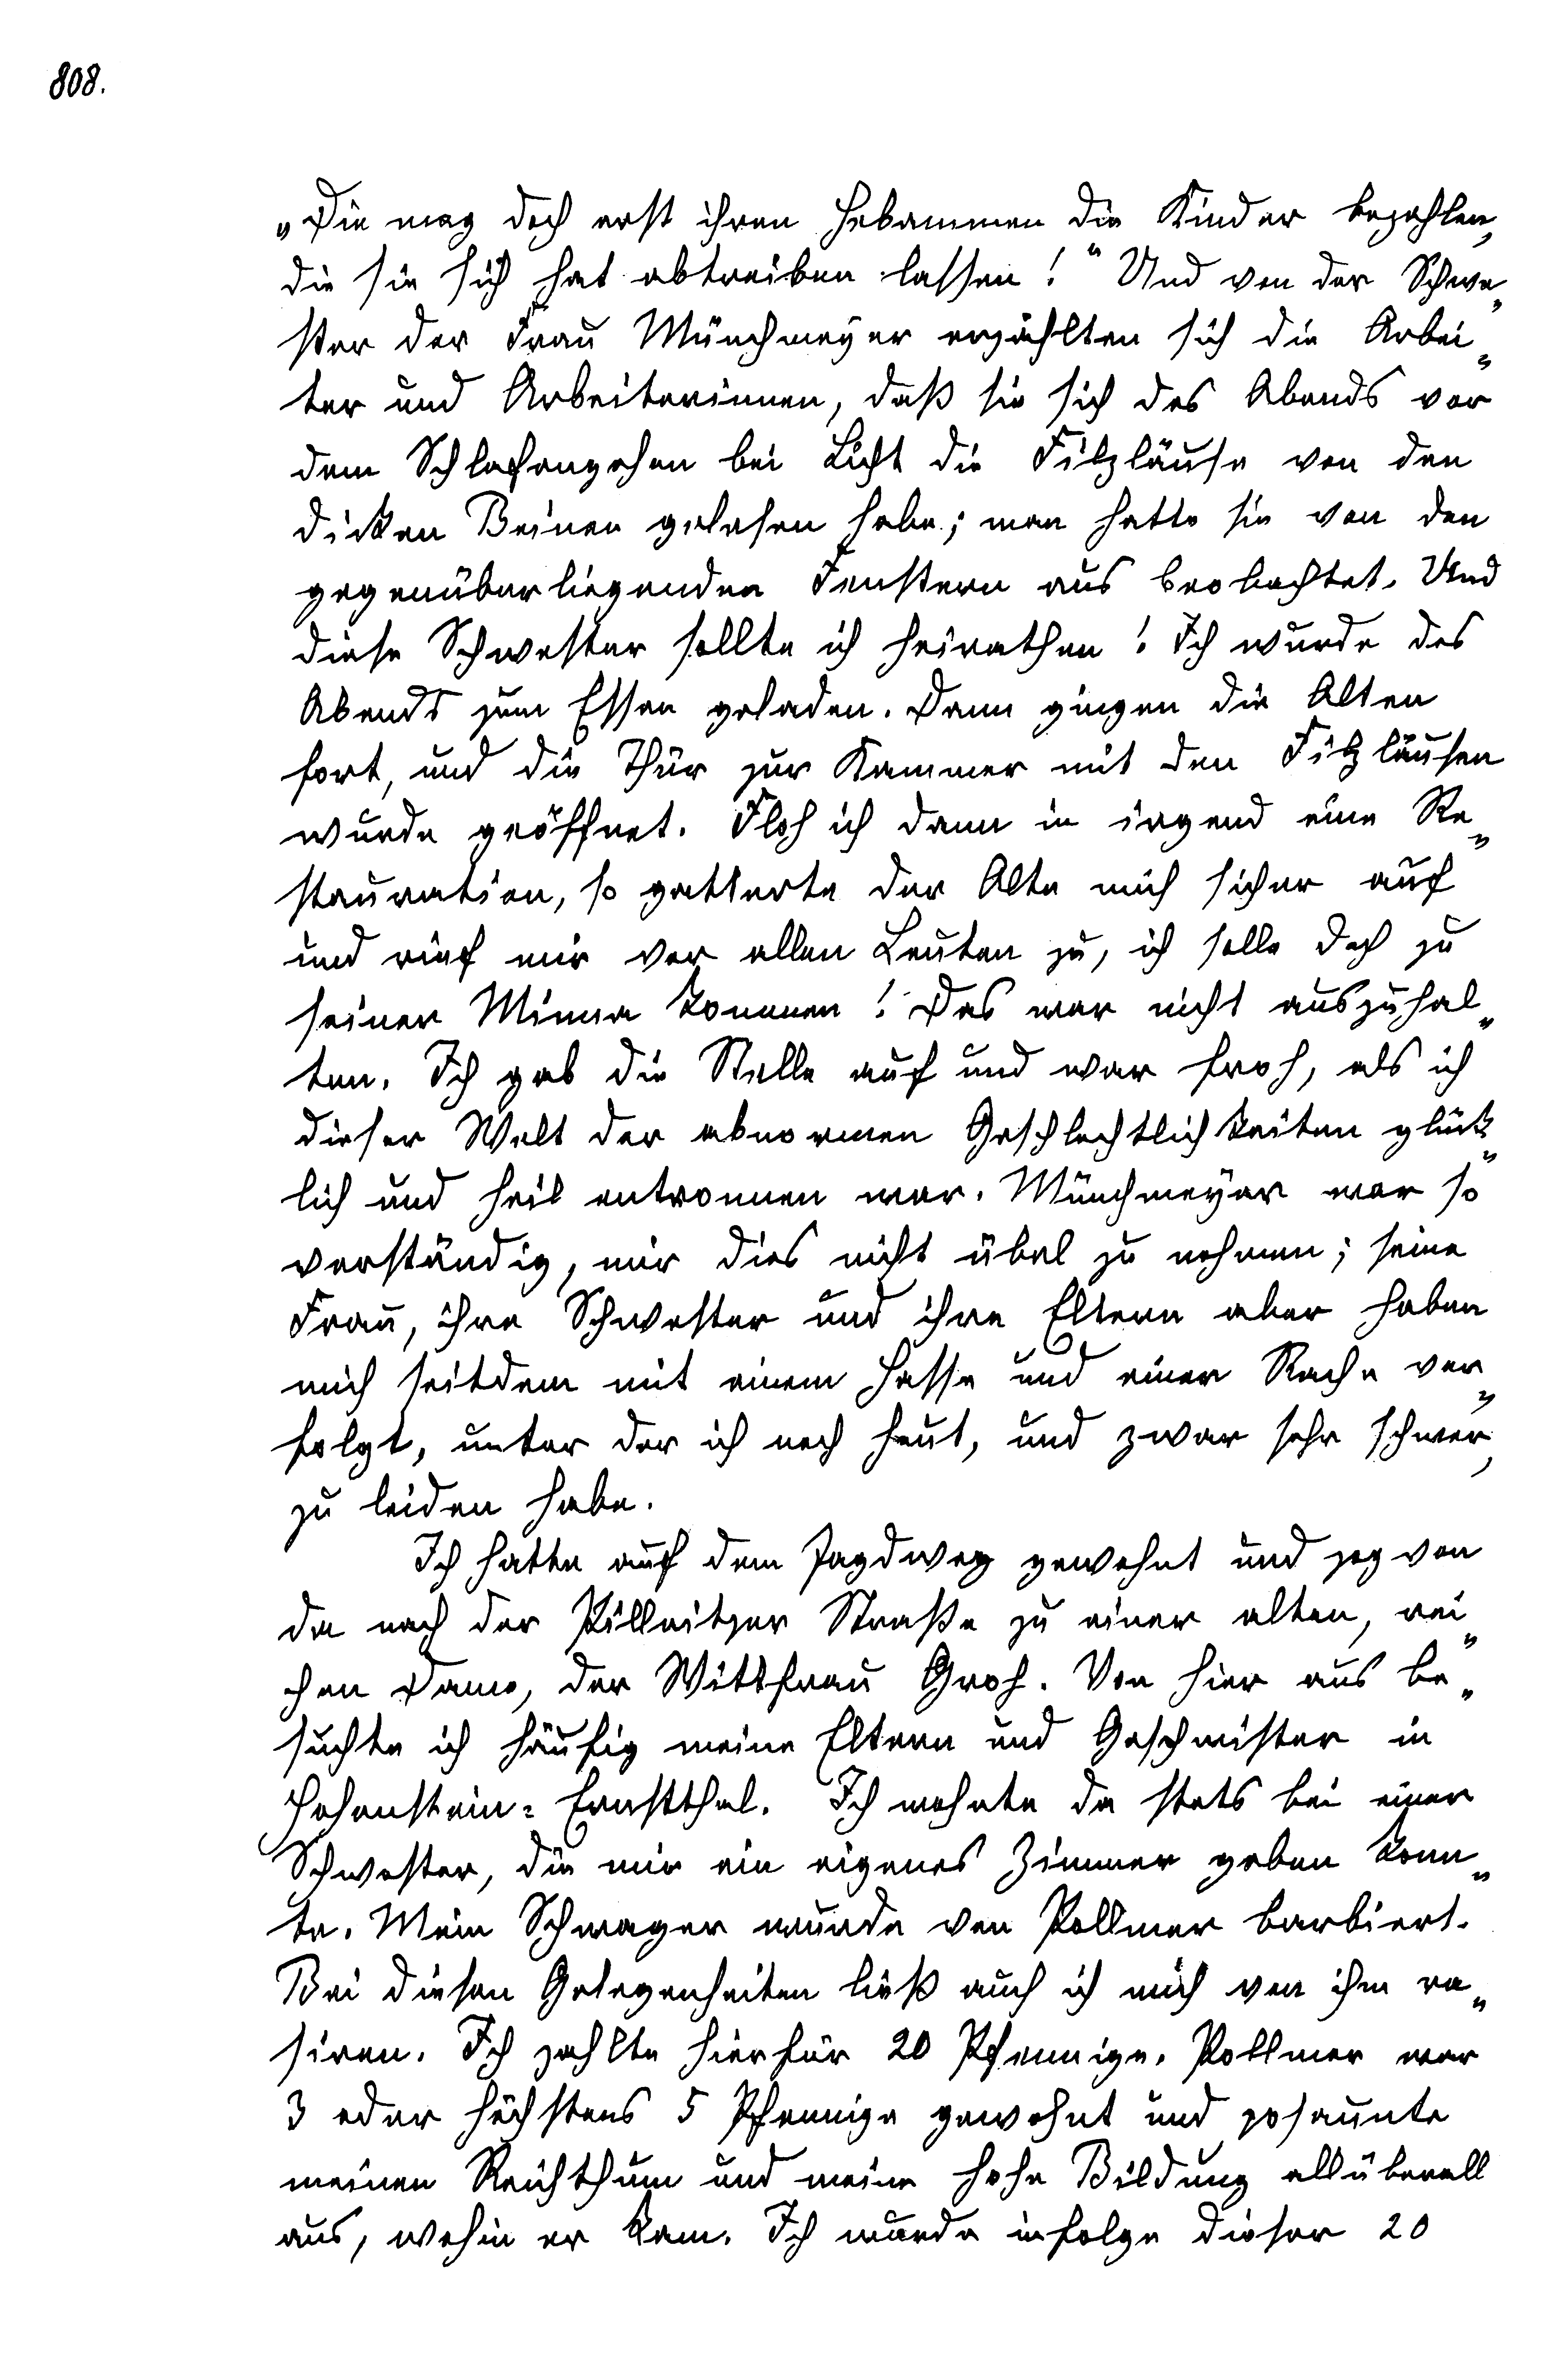 808.
„Die mag doch erst ihren Hebammen die Kinder bezahlen,
die sie sich hat abtreiben lassen!“ Und von der Schwe„
ster der Frau Münchmeyer erzählten sich die Arbei„
ter und Arbeiterinnen, daß sie sich des Abends vor
dem Schlafengehen bei Licht die Filzläuse von den
dicken Beinen gelesen habe; man hatte sie von den
gegenüberliegenden Fenstern aus beobachtet. Und
diese Schwester sollte ich heirathen! Ich wurde des
Abends zum Essen geladen. Dann gingen die Alten
fort, und die Thür zur Kammer mit den Filzläusen
wurde geöffnet. Floh ich dann in irgend eine Re„
stauration, so gatterte der Alte mich sicher auf
und rief mir vor allen Leuten zu, ich solle doch zu
seiner Minna kommen! Das war nicht auszuhal„
ten. Ich gab die Stelle auf und war froh, als ich
dieser Welt der abnormen Geschlechtlichkeiten glück„
lich und heil entronnen war. Münchmeyer war so
verständig, mir dies nicht übel zu nehmen; seine
Frau, ihre Schwester und ihre Eltern aber haben
mich seitdem mit einem Hasse und einer Rache ver„
folgt, unter der ich noch heut, und zwar sehr schwer,
zu leiden habe.
Ich hatte auf dem Jagdweg gewohnt und zog von
da nach der Pillnitzer Straße zu einer alten, rei„
chen Dame, der Wittfrau Groh. Von hier aus be„
suchte ich häufig meine Eltern und Geschwister in
Hohenstein-Ernstthal. Ich wohnte da stets bei einer
Schwester, die mir ein eigenes Zimmer geben konn„
te. Mein Schwager wurde von Pollmer barbiert.
Bei diesen Gelegenheiten ließ auch ich mich von ihm ra„
siren. Ich zahlte hierfür 20 Pfennige. Pollmer war
3 oder höchstens 5 Pfennige gewohnt und posaunte
meinen Reichthum und meine hohe Bildung allüberall
aus, wohin er kam. Ich wurde infolge dieser 20